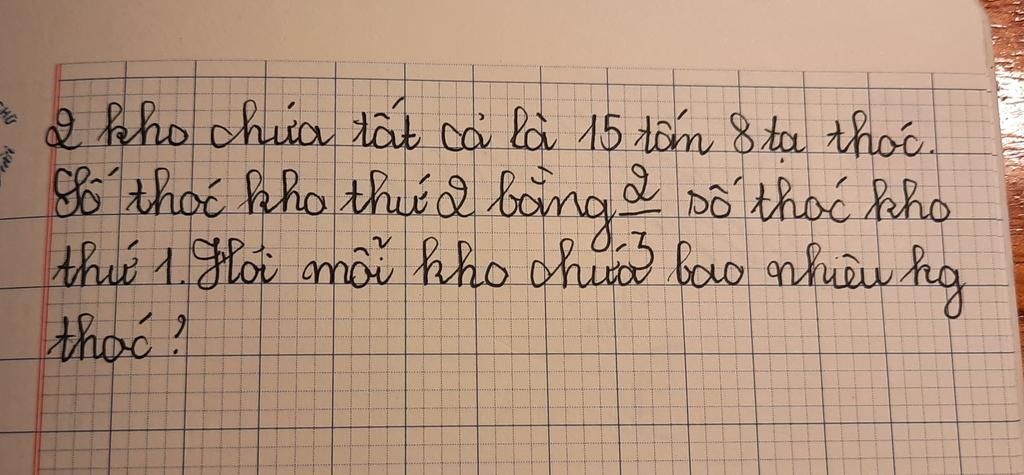 2 kho chứa tất cả là 15 tấn 8 tạ thóc.
Số thóc kho thứ 2 bằng 2/3 số thóc kho
thứ 1. Hỏi mỗi kho chứa bao nhiêu kg
thóc?